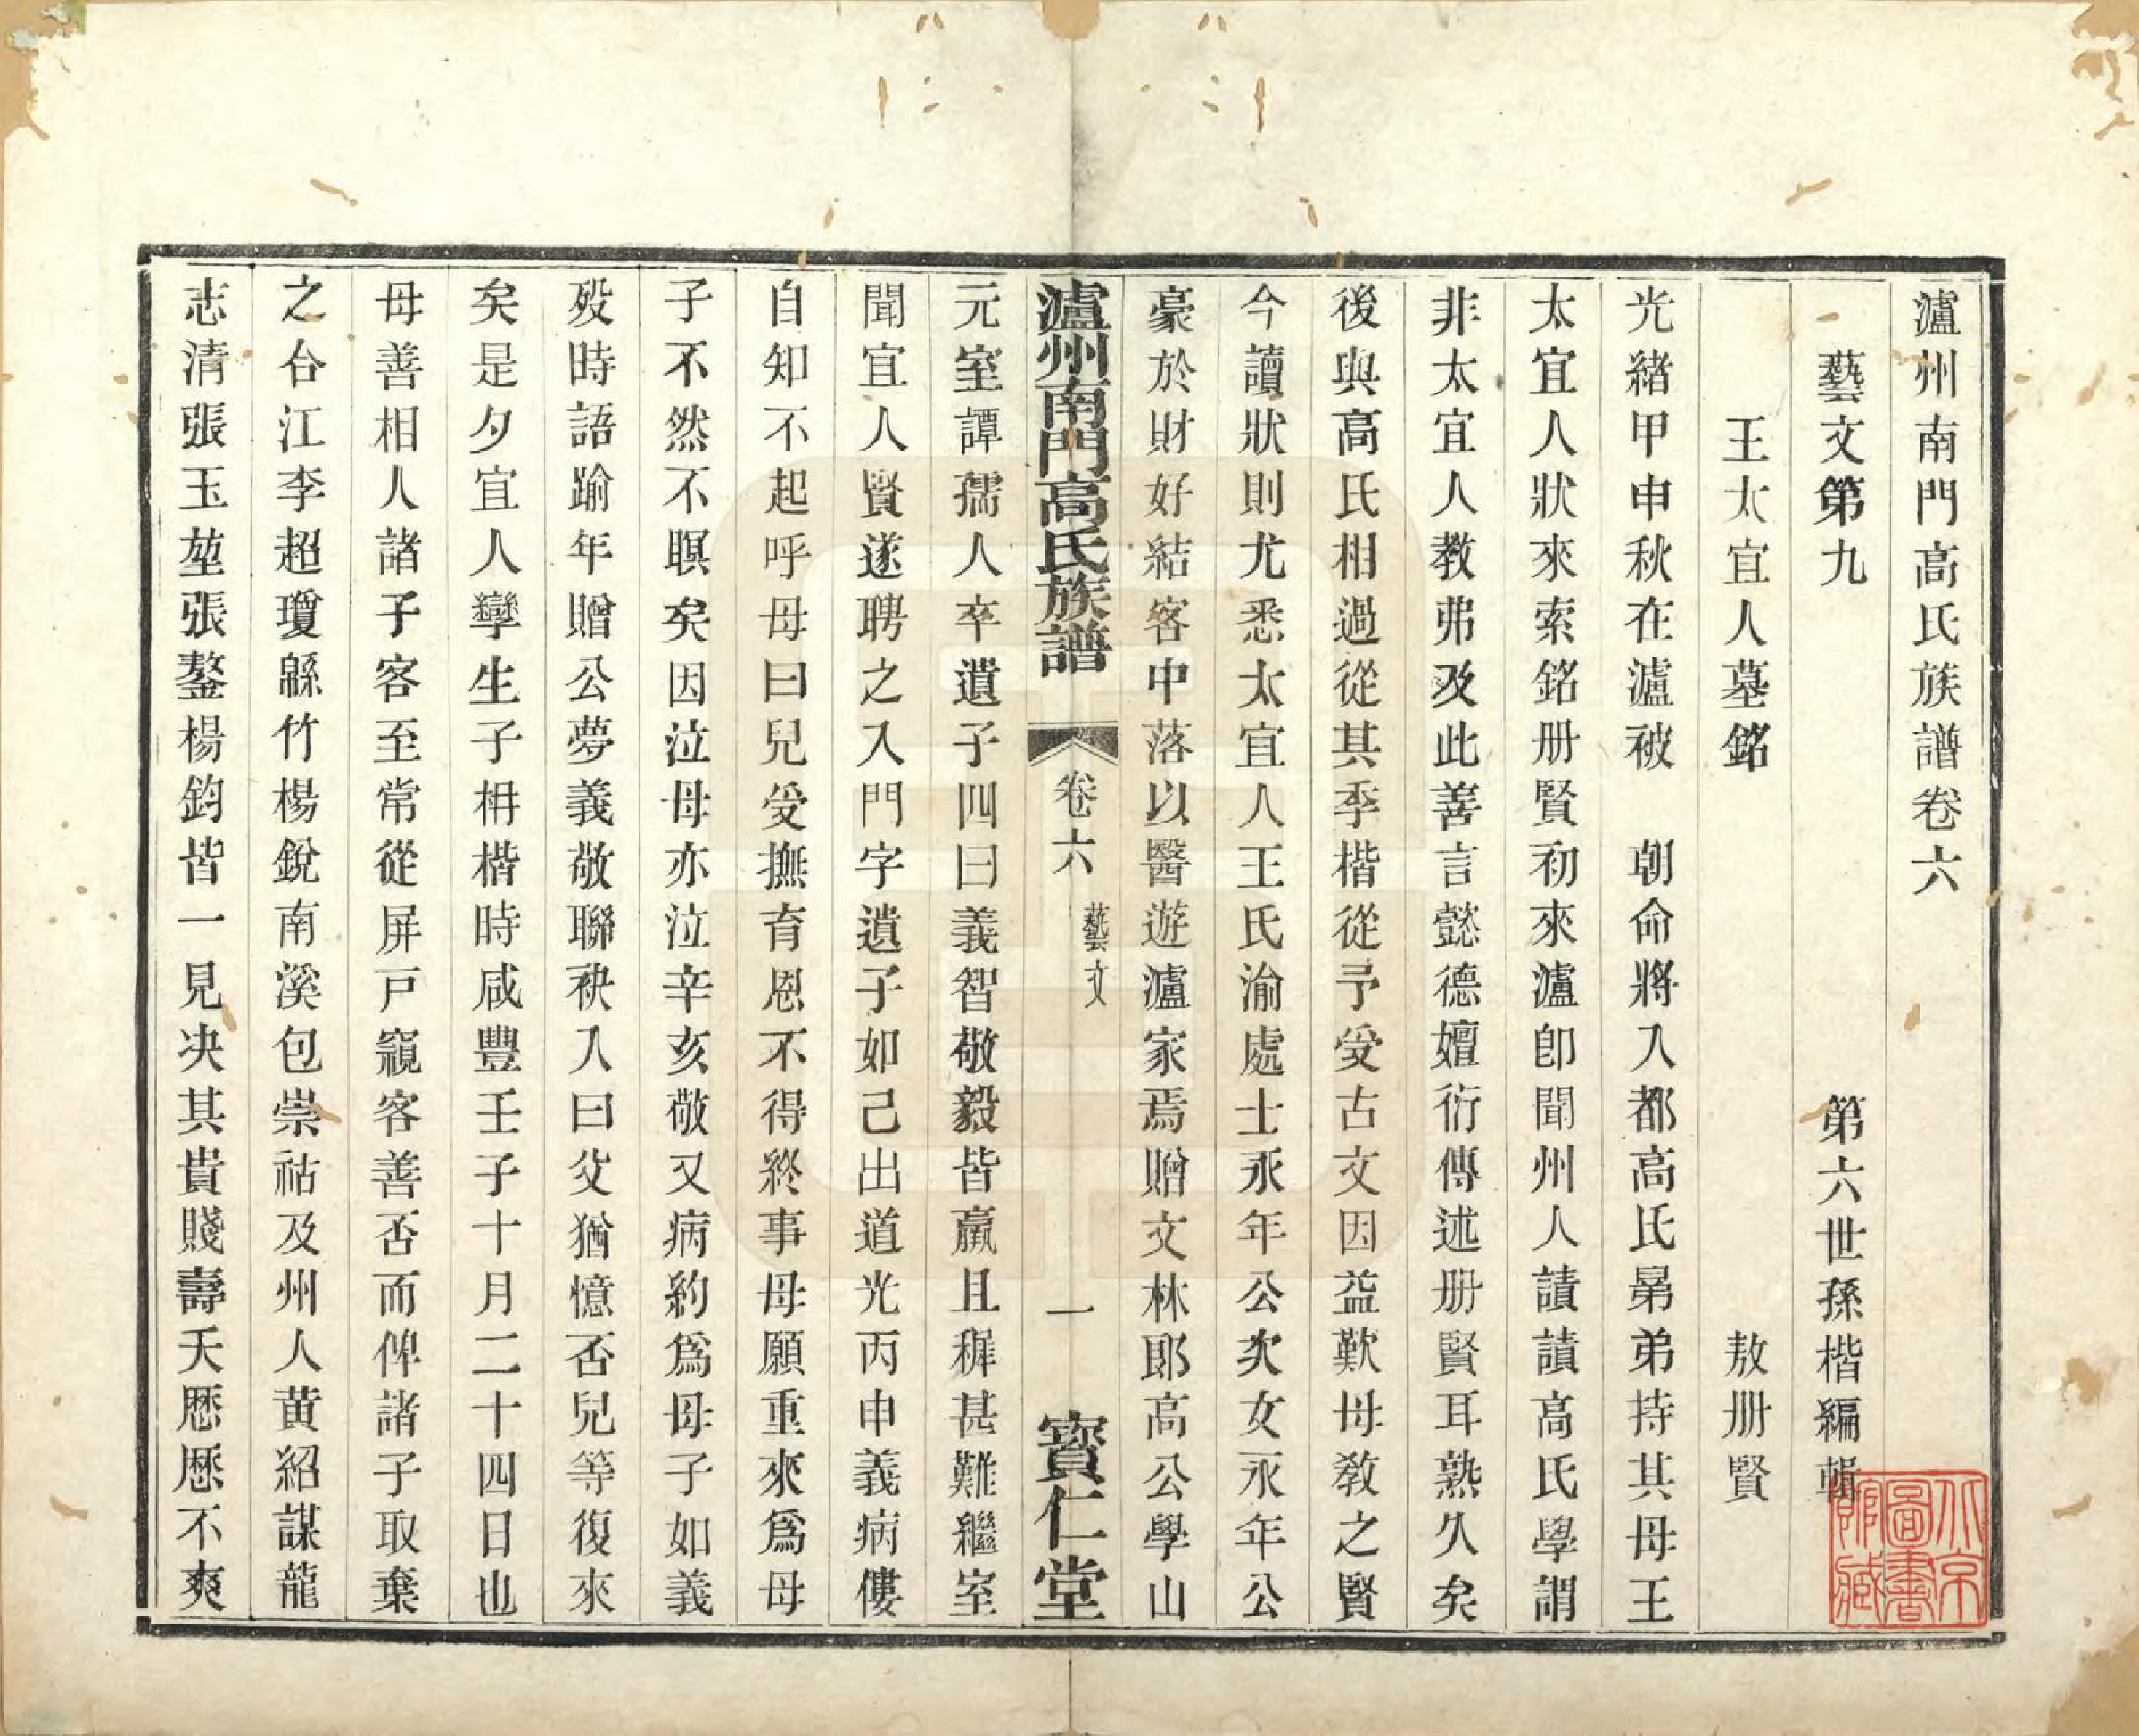 瀘州南門高氏族譜卷六
藝文第九 第六世孫楷編輯
王太宜人墓銘 敖册賢
光緒甲申秋在瀘被 朝命將入都高氏晜弟持其母王
太宜人狀來索銘册賢初來瀘卽聞州人讀讀高氏學謂
非太宜人教弗及此善言懿德嬗衍傳述册賢耳熟久矣
後與高氏相過從其季楷從予受古文因益歎母教之賢
今讀狀則尤悉太宜人王氏渝處士永年公次女永年公
豪於財好結客中落以醫遊瀘家焉贈文林郎高公學山
瀘州南門高氏族譜 卷六 藝文 一 寳仁堂
元室譚孺人卒遺子四曰義智敬毅皆羸且穉甚難繼室
聞宜人賢遂聘之入門字遺子如己出道光丙申義病僂
自知不起呼母曰兒受撫育恩不得終事母願重來爲母
子不然不瞑矣因泣母亦泣辛亥敬又病約爲母子如義
歿時語踰年贈公夢義敬聯袂入曰父猶憶否兒等復來
矣是夕宜人孿生子枏楷時咸豐壬子十月二十四日也
母善相人諸子客至常從屏戸窺客善否而俾諸子取棄
之合江李超瓊緜竹楊銳南溪包崇祜及州人黄紹謀龍
志清張玉堃張鏊楊鈞皆一見决其貴賤壽夭歷歷不爽
北京圖書館藏